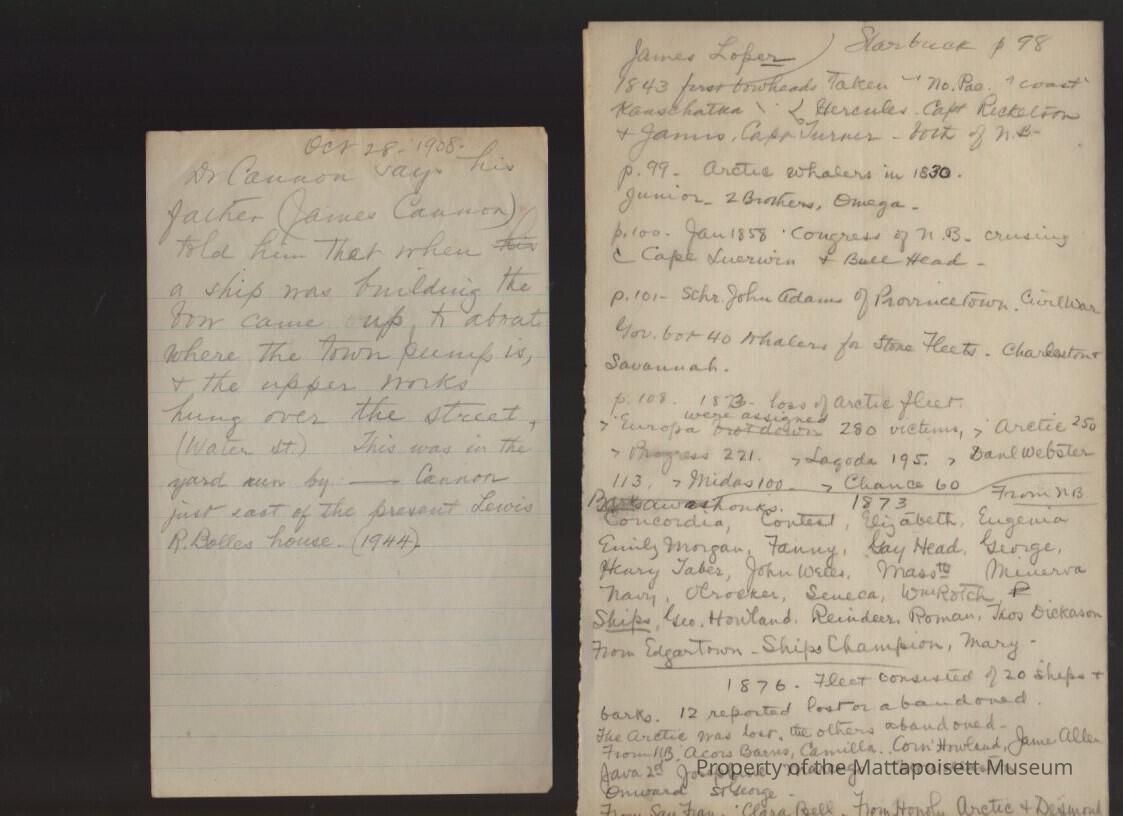 Oct 28 - 1908.
Dr Cannon says his
father (James Cannon)
told him that when this
a ship was building the
bow came up to about
where the town pump is,
+ the upper works
hung over the street,
(Water St.) This was in the
yard run by —— Cannon
just east of the present Lewis
R. Bolles house. (1944).
James Loper ) Starbuck p 98
1843 first bowheads taken " No. Pac. " coast
Kamschatka Hercules. Capt Ricketson
+ Janus. Capt Turner - both of N.B-
p. 99. Arctic whalers in 1830.
Junior - 2 Brothers, Omega -
p. 100 - Jan 1858 Congress of N.B. crusing
Cape + Bull Head -
p. 101 - Schr. John Adams of Provincetown. Civil War
Gov. bot 40 whalers for Stone Fleets. Charleston +
Savannah.
p. 108. 1873- loss of Arctic fleet.
were assigned
Europa 280 victims, Arctic 250
Progress 221. Lagoda 195. Danl Webster
113. Midas 100 Chance 60
From NB
1873
Concordia, Contest, Elizabeth, Eugenia
Emily Morgan, Fanny, Gay Head, George,
Henry Taber, John Wells, Massts Minerva
Navy, O Crocker, Seneca, Wm Rotch,
Ships, Geo. Howland. Reindeer. Roman, Thos Dickason
From Edgartown - Ships Champion, Mary -
1876 - Fleet consisted of 20 ships +
barks. 12 reported lost or abandoned.
The Arctic was lost, the others abandoned -
From NB. Acors Barns, Camilla, Corn Howland, James Allen
Java 2d Josephine
Onward St George -
From San Fran. Clara Bell. From Honolu Arctic + Desmond
Property of the Mattapoisett Museum